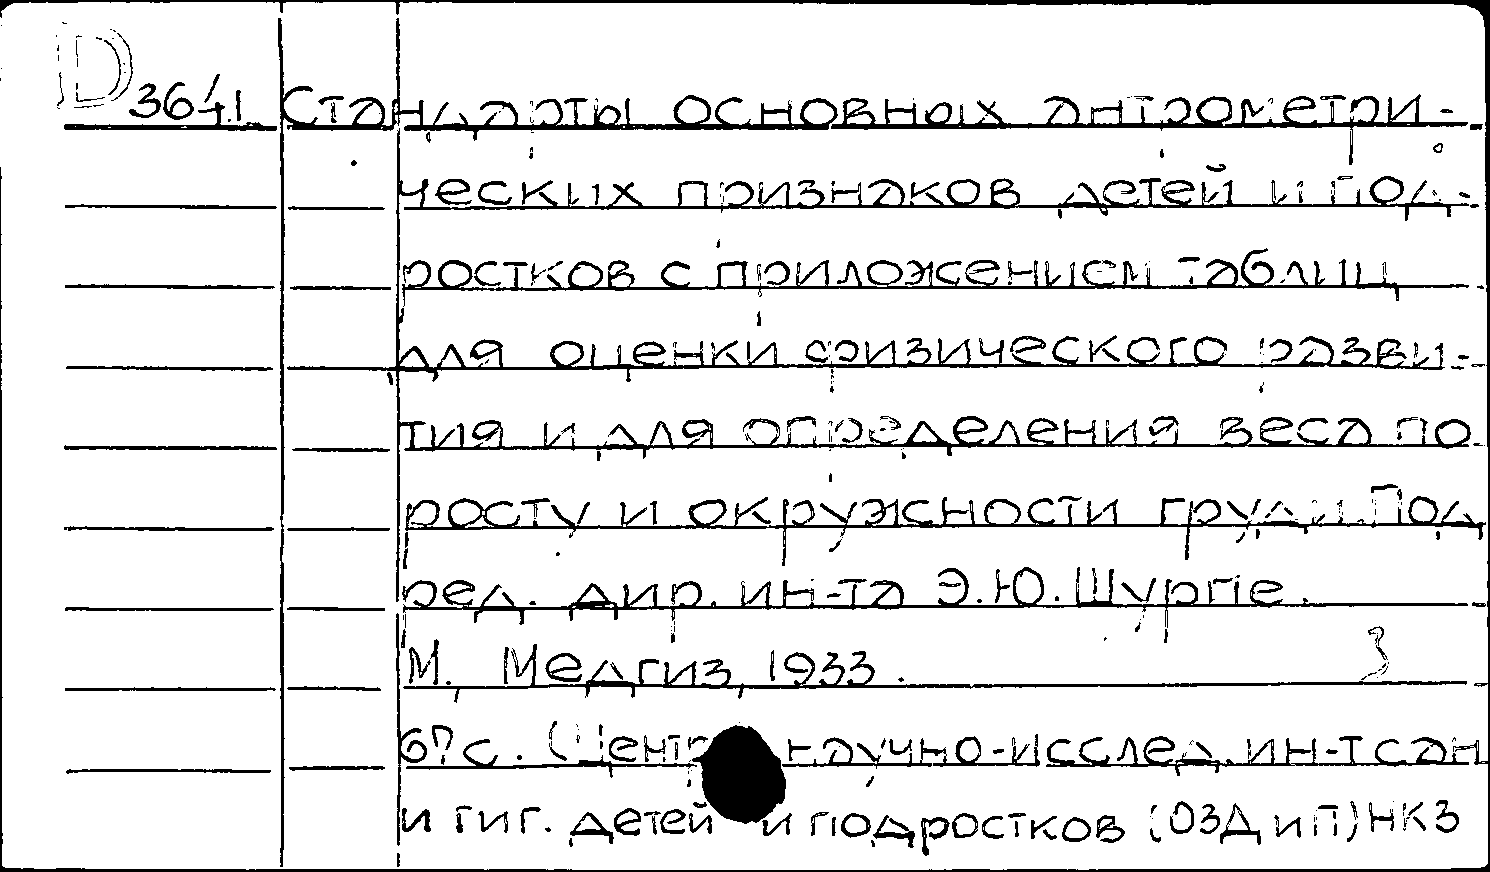 D 3641 Стандарты основных антрометри-
ческих признаков детей и под-
ростков с приложением таблиц
для оценки физического разви-
тия и для определения веса по
росту и окружности груди. Под
ред. дир. ин-та Э.Ю. Шурпе.
М., Медгиз, 1933.
3
67 с. (Центр научно-исслед. ин-т сан
и гиг. детей и подростков (ОЗД и П) НКЗ